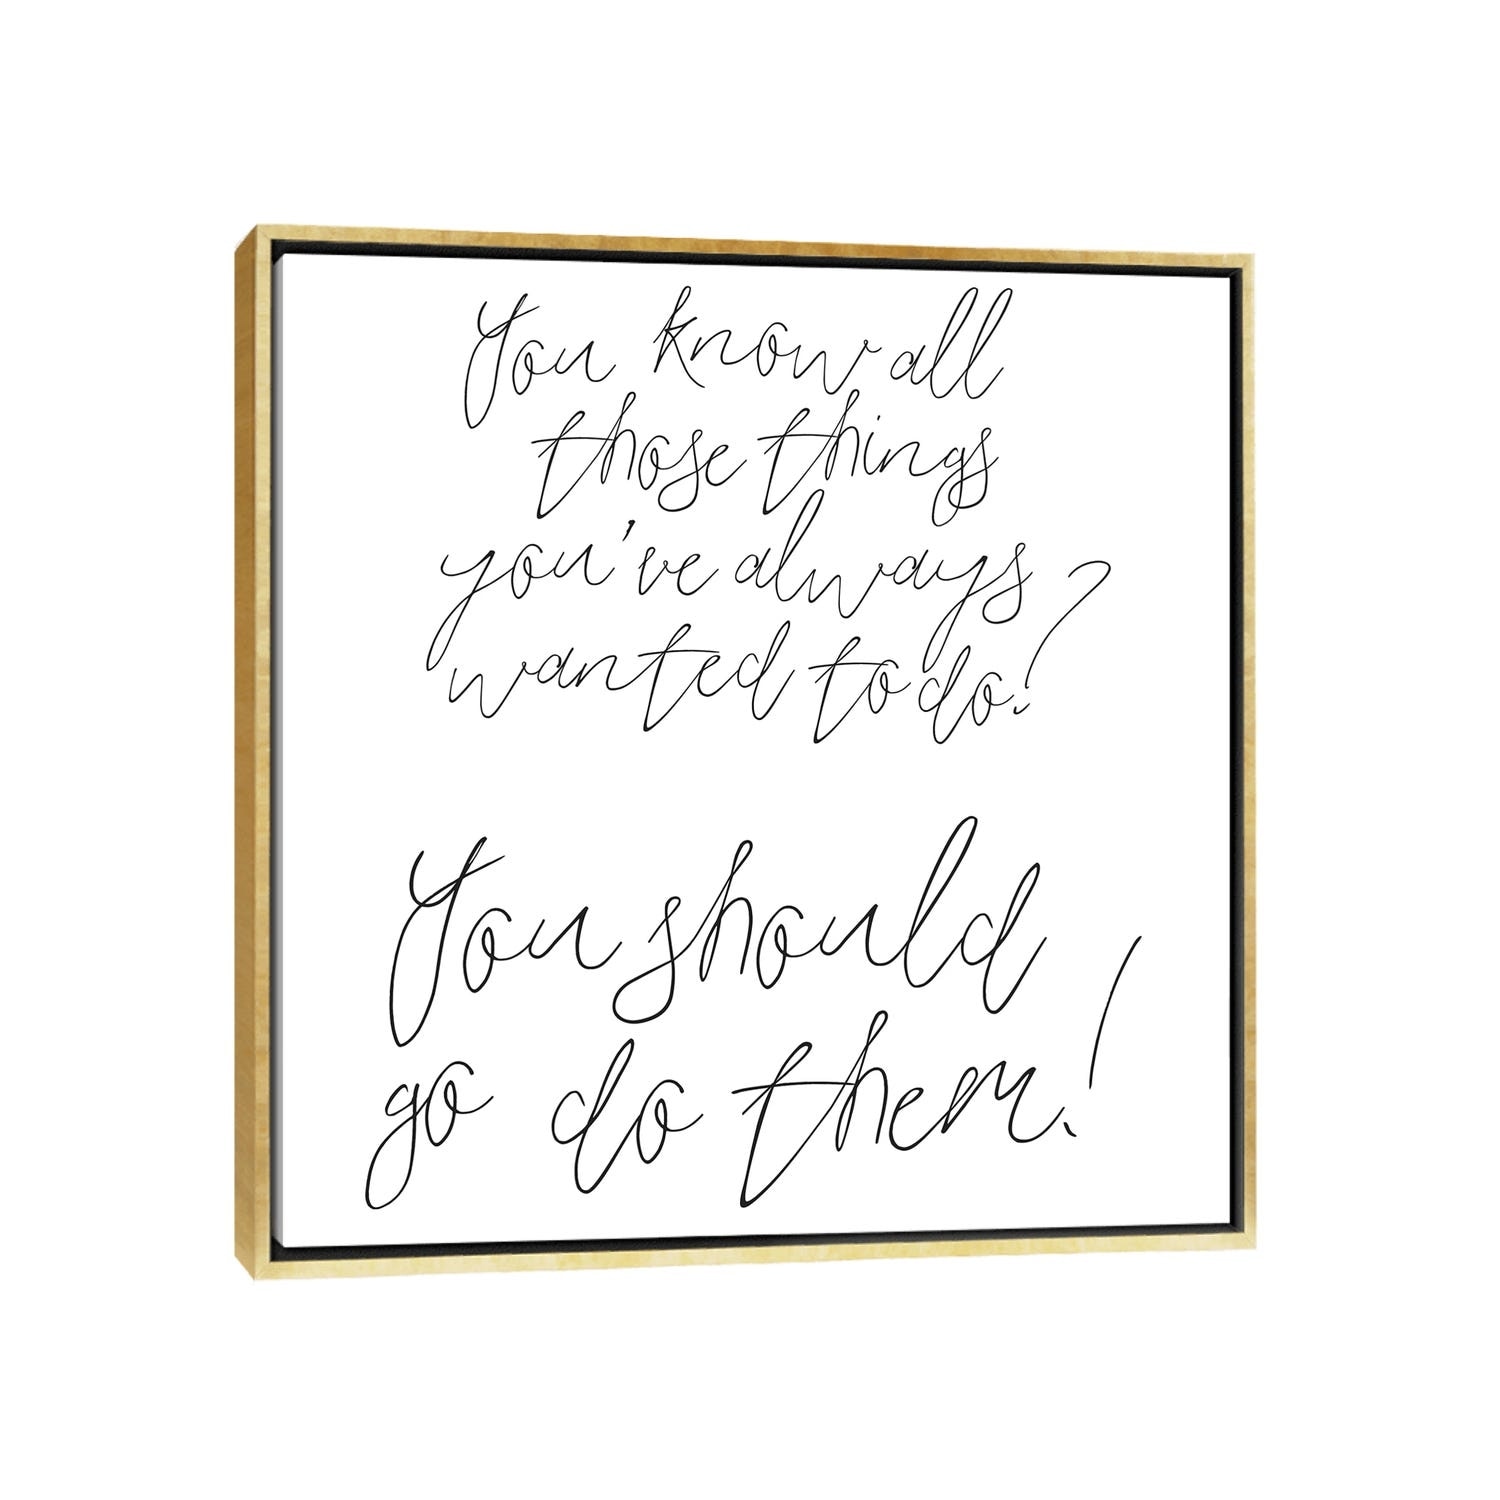 You know all
those things
you've always
wanted to do?
You should
go do them!